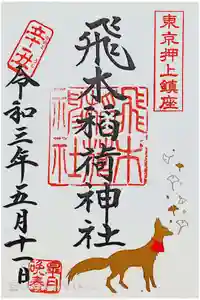 東京押上鎮座
飛木稲荷神社
飛木稲荷神社
令和三年五月十一日
皐月